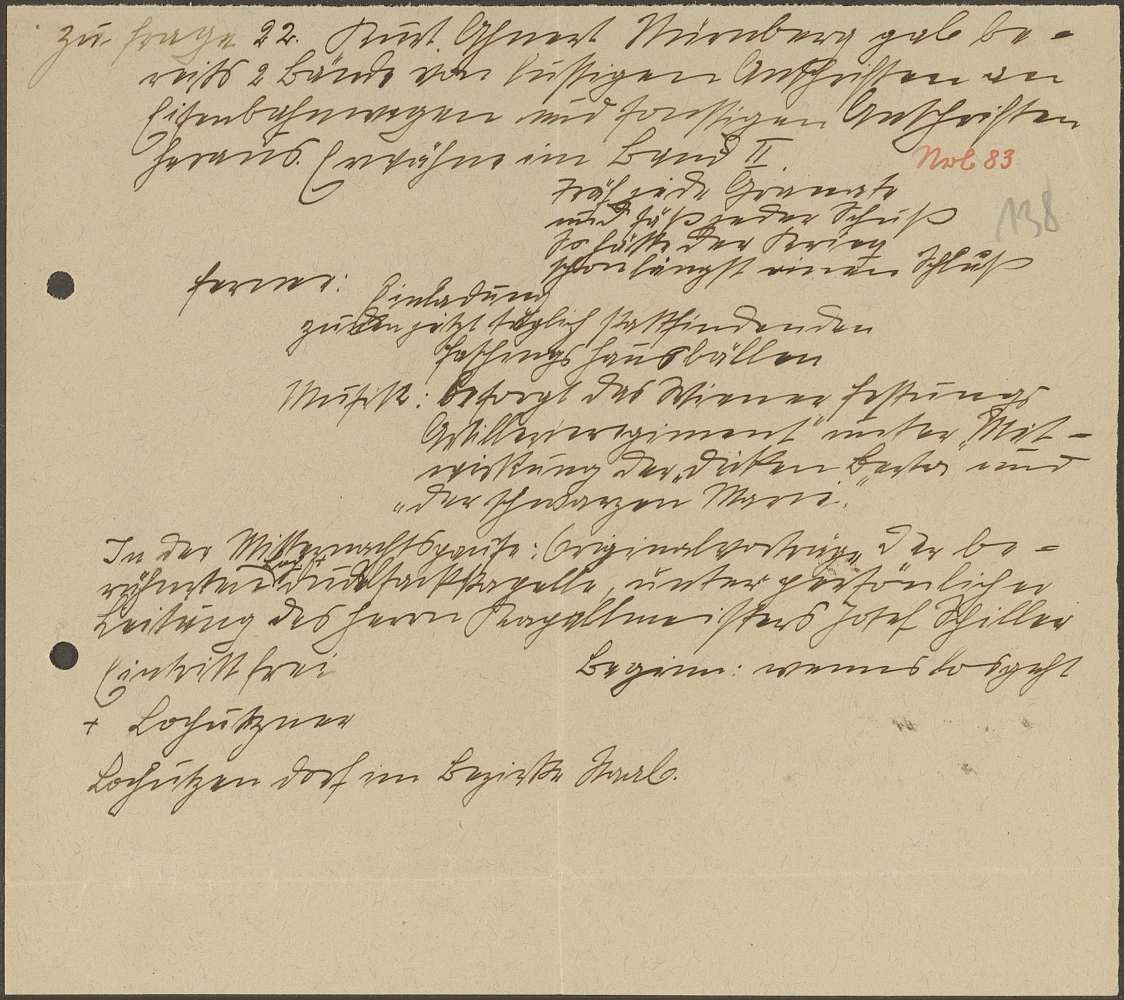 Zu Frage 22. Kurt Ahnert Nürnberg gab be-
reits 2 Bände von lustigen Aufschriften an
Eisenbahnwagen und sonstigen Aufschriften
heraus. Erwähne im Band II
Nol 83
138
Träf jede Granate
und säß jeder Schuß
So hätte der Krieg
schon längst einen Schluß
ferner: Einladung
zu den jetzt täglich stattfindenden
Faschingshausbällen
Musik: besorgt das Wiener Festungs
Artillerieregiment" unter Mit-
wirkung der „dicken Berta" und
„der schwarzen Marie."
In der Mitternachtspause: Originalvorträge der be-
rühmten + Dudelsackkapelle, unter persönlicher
Leitung des Herrn Kapellmeisters Josef Schiller
Eintritt frei Beginn: wenns losgeht
+ Lochutzner
Lochutzen Dorf im Bezirke Staab.